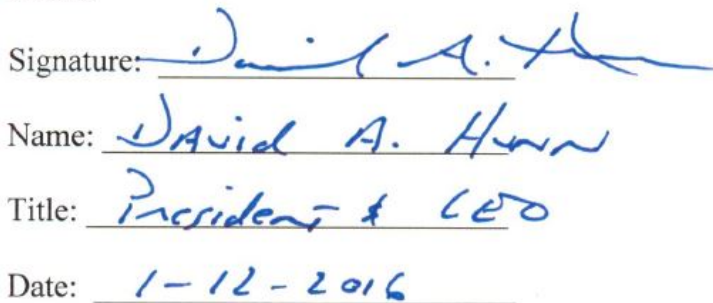 Signature: David A. Hunn
Name: David A. Hunn
Title: President & CEO
Date: 1-12-2016